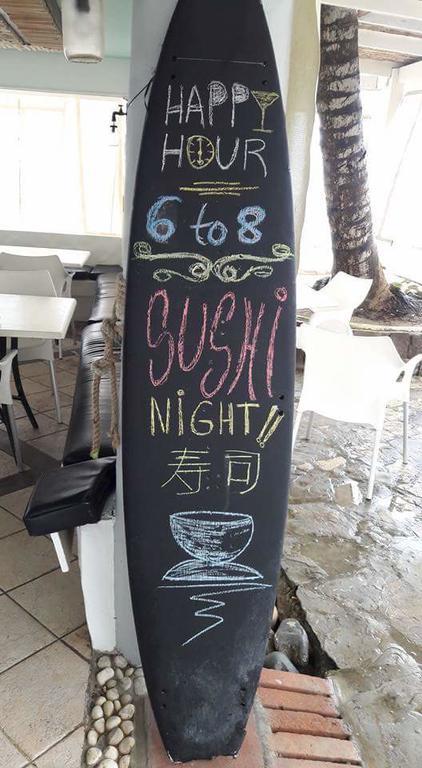 HAPPY
HOUR
6 to 8
SUSHI
NIGHT!!
寿司